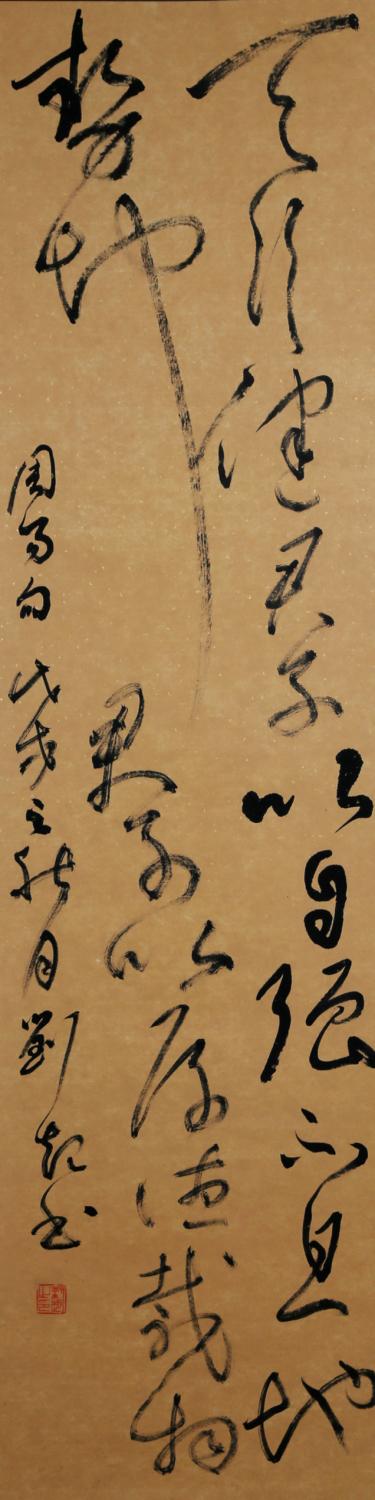 天行健君子以自强不息地
勢坤君子以厚德載物
周易句戊戌之秋月劉书